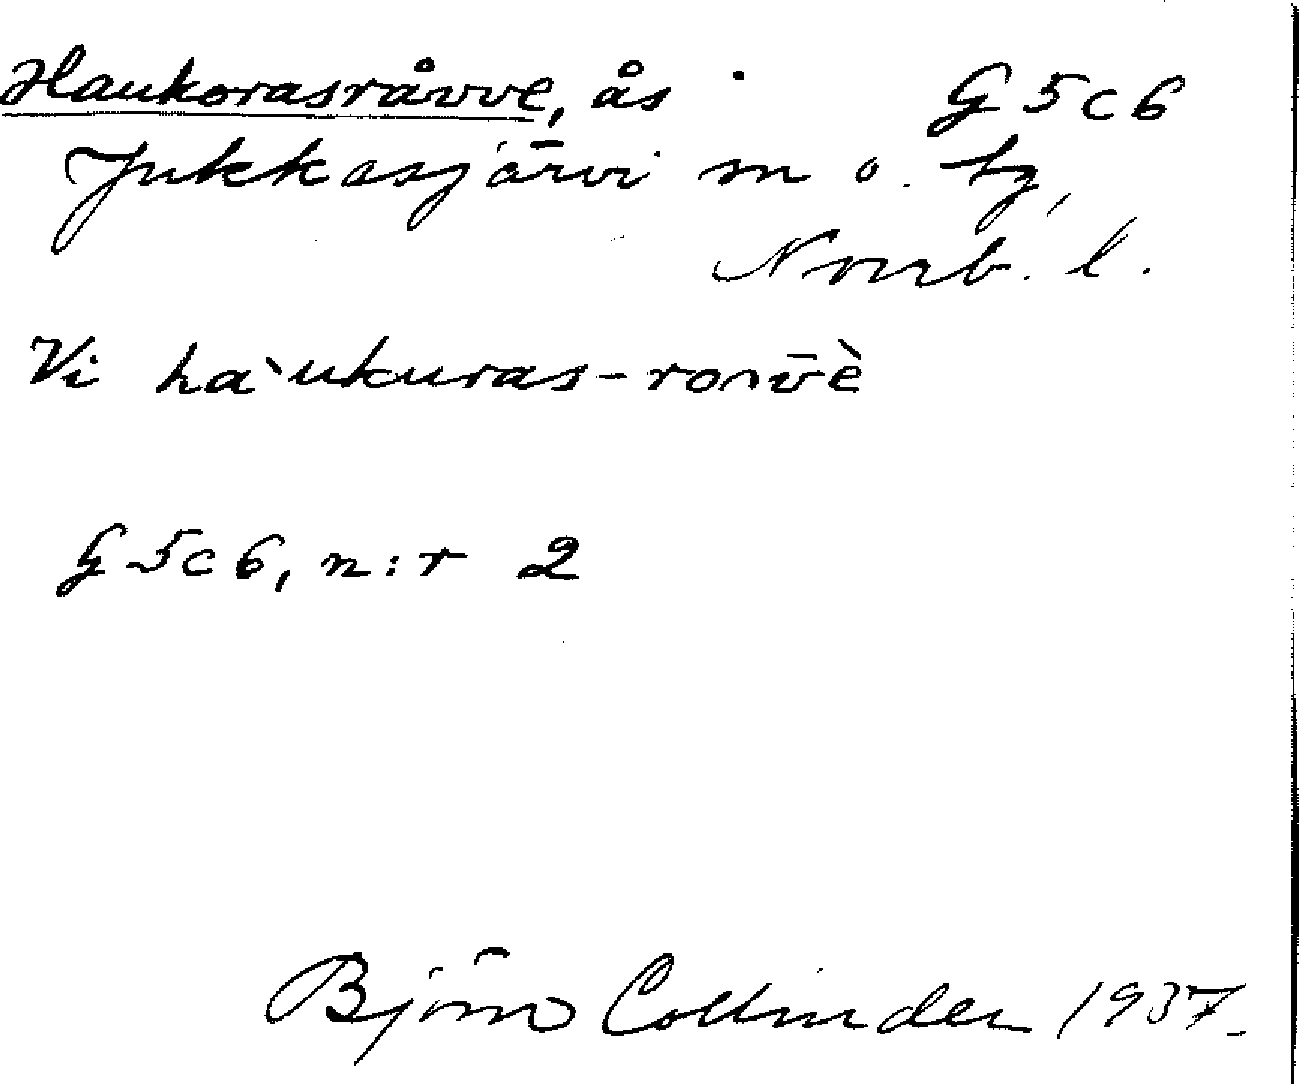 Haukorasråvve, ås G 5 c 6
Jukkasjärvi m o. tg,
Norrb. l.
Vi hàukuras-ronv̄è
G 5 c 6, n:r 2
Björn Collinder 1937.